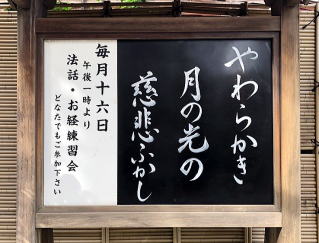 やわらかき
月の光の
慈悲ふかし
毎月十六日
午後一時より
法話・お経練習会
どなたでもご参加下さい